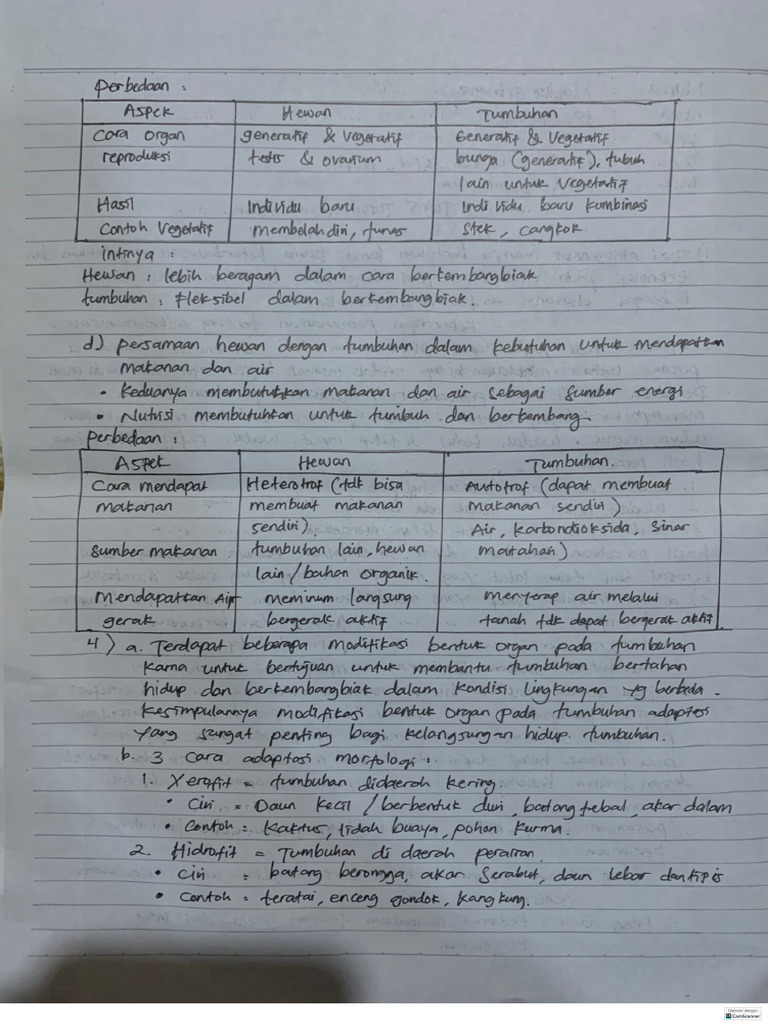 Perbedaan :
Aspek Hewan Tumbuhan
Cara organ generatif & vegetatif Generatif & vegetatif
reproduksi testis & ovarium bunga (generatif), tubuh
lain untuk vegetatif
Hasil Individu baru Individu baru kombinasi
Contoh vegetatif membelah diri, tunas Stek, cangkok
intinya :
Hewan : lebih beragam dalam cara berkembangbiak
tumbuhan : Fleksibel dalam berkembangbiak.
d) persamaan hewan dengan tumbuhan dalam kebutuhan untuk mendapatkan
makanan dan air
• Keduanya membutuhkan makanan dan air sebagai sumber energi
• Nutrisi membutuhkan untuk tumbuh dan berkembang.
Perbedaan :
Aspek Hewan Tumbuhan.
Cara mendapat Heterotrof (tdk bisa Autotrof (dapat membuat
makanan membuat makanan makanan sendiri)
sendiri). Air, karbondioksida, sinar
Sumber makanan tumbuhan lain, hewan matahari)
lain / bahan organik.
Mendapatkan Air meminum langsung menyerap air melalui
gerak bergerak aktif tanah tdk dapat bergerak aktif
4) a. Terdapat beberapa modifikasi bentuk organ pada tumbuhan
karna untuk bertujuan untuk membantu tumbuhan bertahan
hidup dan berkembangbiak dalam kondisi lingkungan yg berbeda.
Kesimpulannya modifikasi bentuk organ pada tumbuhan adaptasi
yang sangat penting bagi kelangsungan hidup tumbuhan.
b. 3 cara adaptasi morfologi :
1. Xerofit = tumbuhan didaerah kering.
• Ciri = Daun kecil / berbentuk duri, batang tebal, akar dalam
• Contoh = Kaktus, lidah buaya, pohon kurma.
2. Hidrofit = Tumbuhan di daerah perairan.
• Ciri = batang berongga, akar serabut, daun lebar dan tipis
• Contoh = teratai, enceng gondok, kangkung.
CamScanner